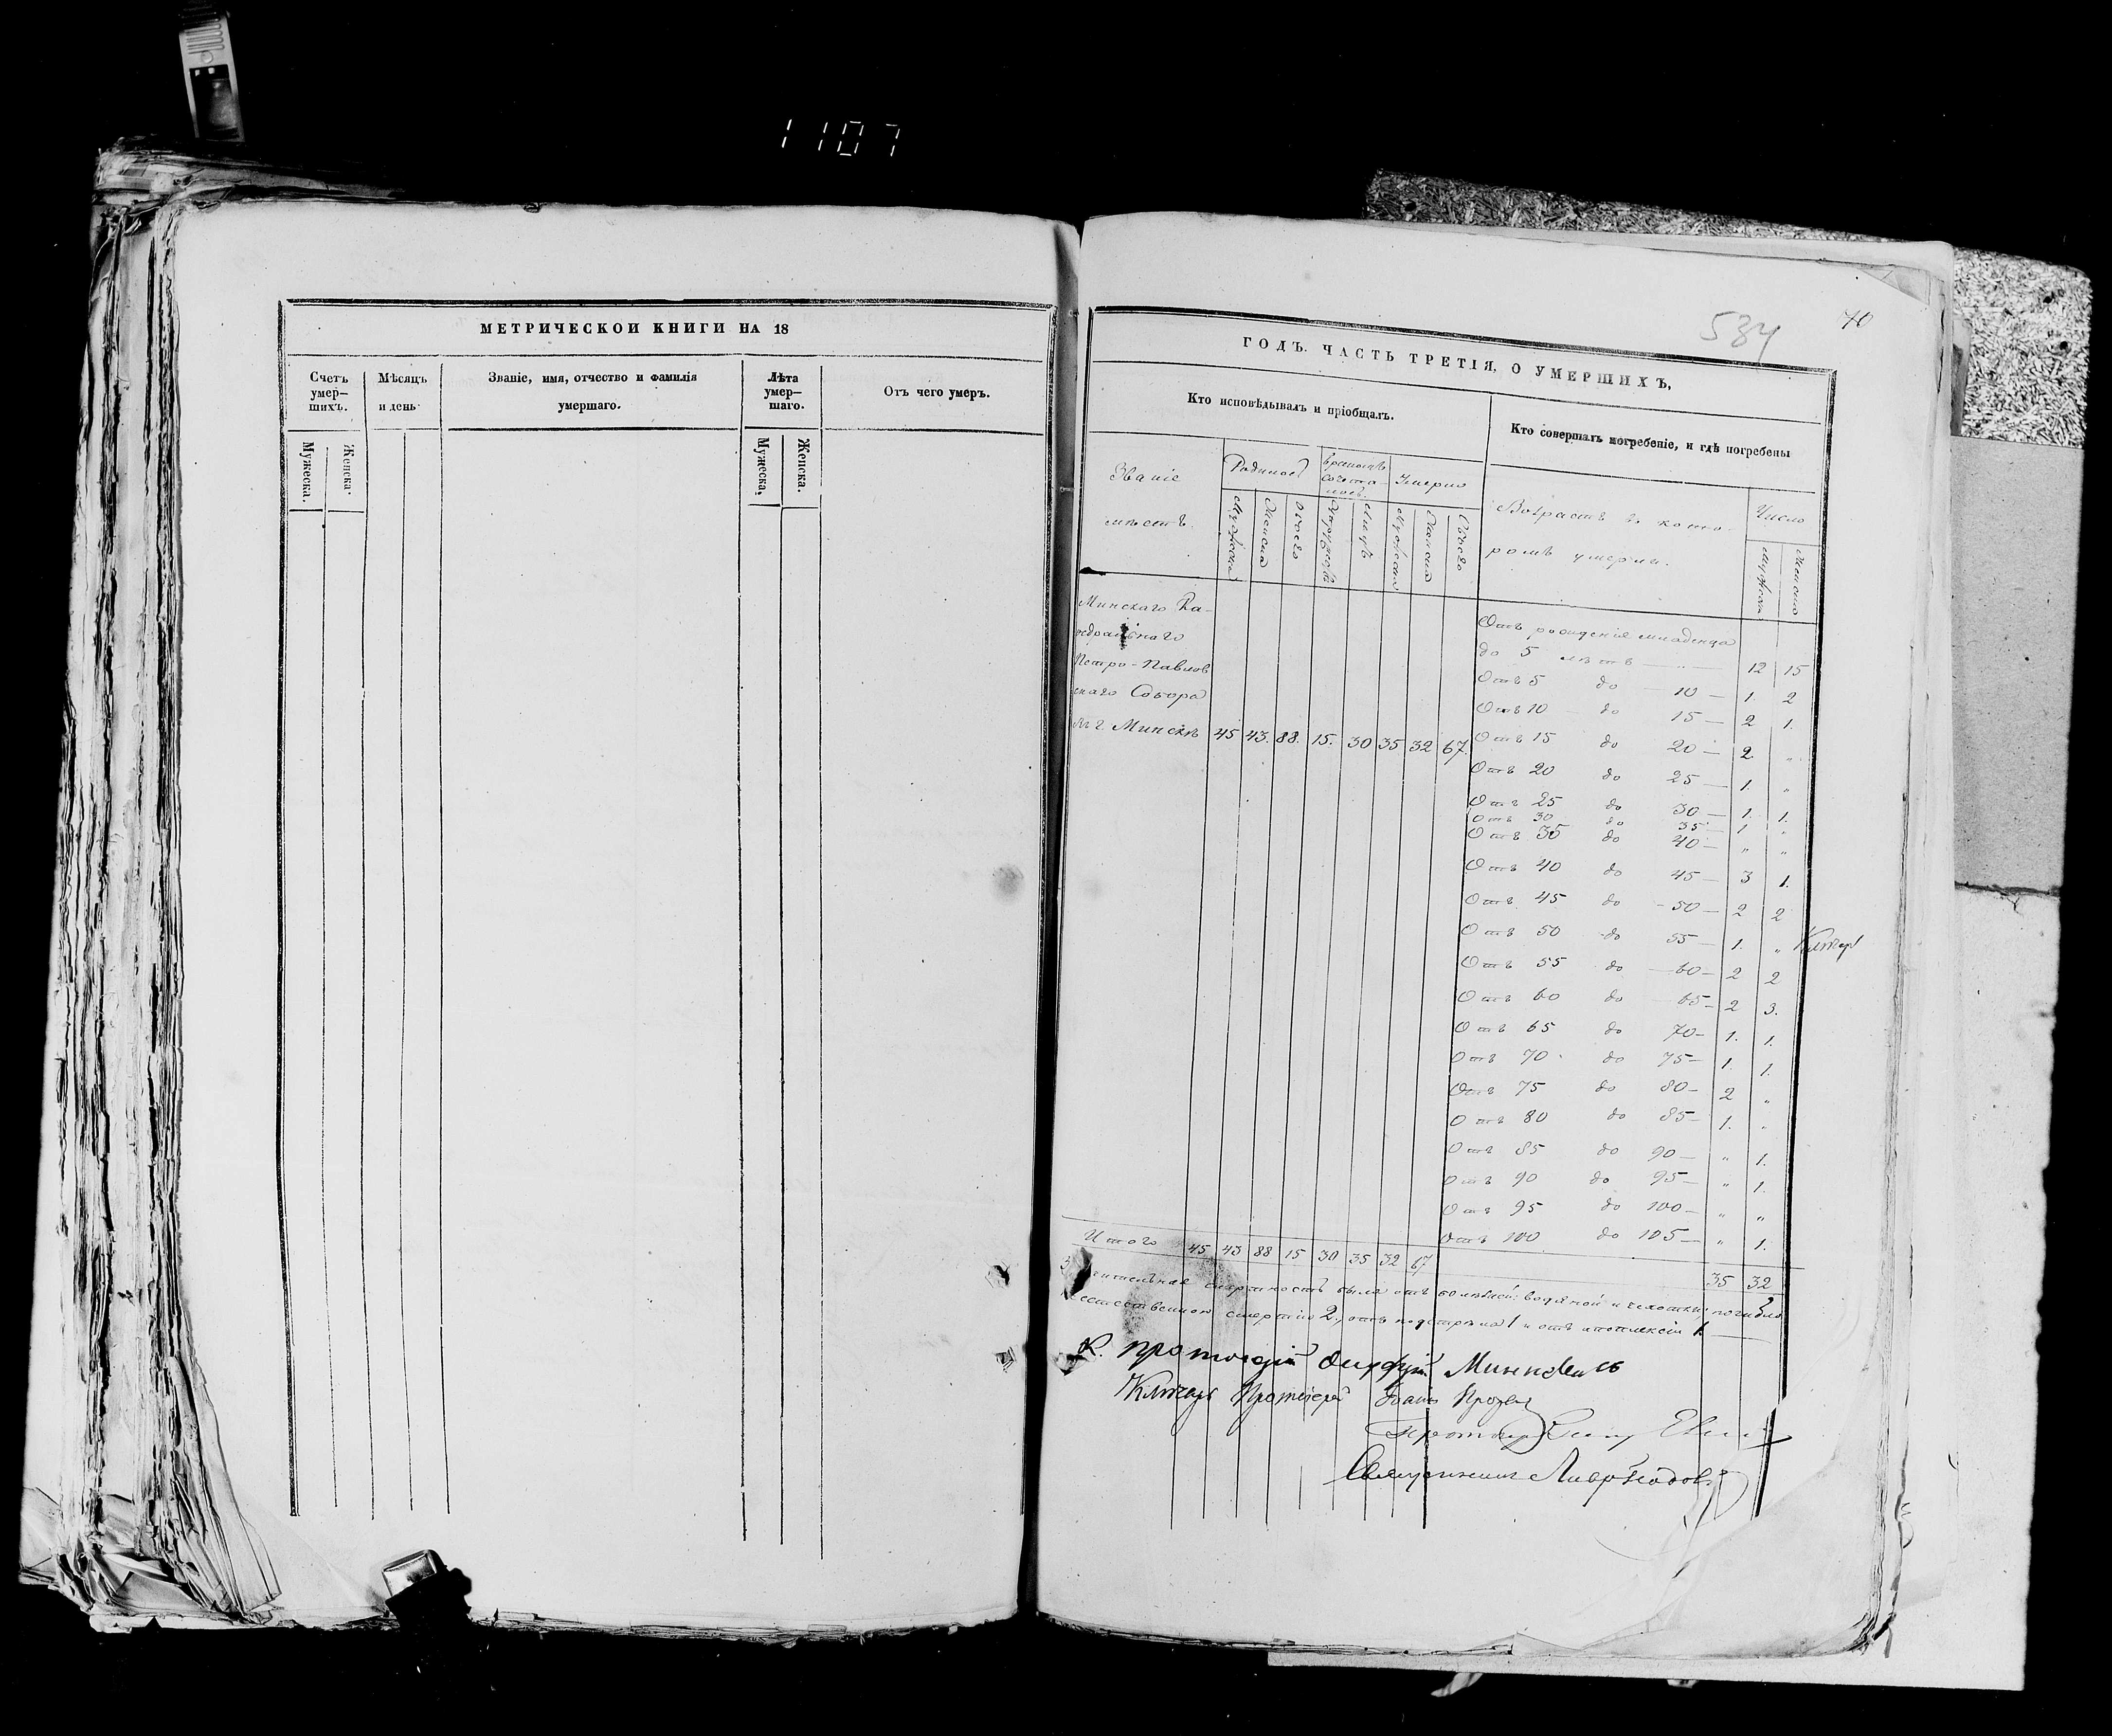 1107
МЕТРИЧЕСКОЙ КНИГИ НА 18
Счетъ умер-шихъ.
Мужеска.
Женска.
Мѣсяцъ и день.
Званіе, имя, отчество и фамилія умершаго.
Лѣта умер-шаго.
Мужеска.
Женска.
Отъ чего умеръ.
534
70
ГОДЪ. ЧАСТЬ ТРЕТІЯ, О УМЕРШИХЪ,
Кто исповѣдывалъ и пріобщалъ.
Кто совершалъ погребеніе, и гдѣ погребены
Званіе мѣстъ.
Родилось
Мужеска
Женска
Обоего
Бракомъ сочета-лось.
Лицъ
Умерло
Мужеска
Женска
Обоего
Возрастъ въ кото-
ромъ умерли.
Число
Мужеска
Женска
Минскаго Ка-
ѳедральнаго
Петро-Павлов
скаго Собора
въ г. Минскѣ 45 43. 88. 15. 30 35 32 67.
Отъ рожденія младенца
до 5 лѣтъ — 12 15
Отъ 5 до 10 — 1. 2
Отъ 10 до 15 — 2 1.
Отъ 15 до 20 — 2 "
Отъ 20 до 25 — 1. "
Отъ 25 до 30 — 1. 1.
Отъ 30 до 35 — 1 "
Отъ 35 до 40 — " "
Отъ 40 до 45 — 3 1.
Отъ 45 до 50 — 2 2
Отъ 50 до 55 — 1. "
Отъ 55 до 60 — 2 2
Отъ 60 до 65 — 2 3.
Отъ 65 до 70 — 1. 1.
Отъ 70 до 75 — 1. 1.
Отъ 75 до 80 — 2 "
Отъ 80 до 85 — 1. "
Отъ 85 до 90 — " 1.
Отъ 90 до 95 — " 1.
Отъ 95 до 100 — " "
Отъ 100 до 105 — " 1.
Итого 45 43 88 15 30 35 32 67
35 32
смертность была отъ болѣзней: водяной и чахотки; погибло
смертію 2, отъ 1 и отъ апоплексіи 1.
К. протоіерей Минкевичъ
Ключарь Протоіерей Іоаннъ
Протоіерей
Священникъ